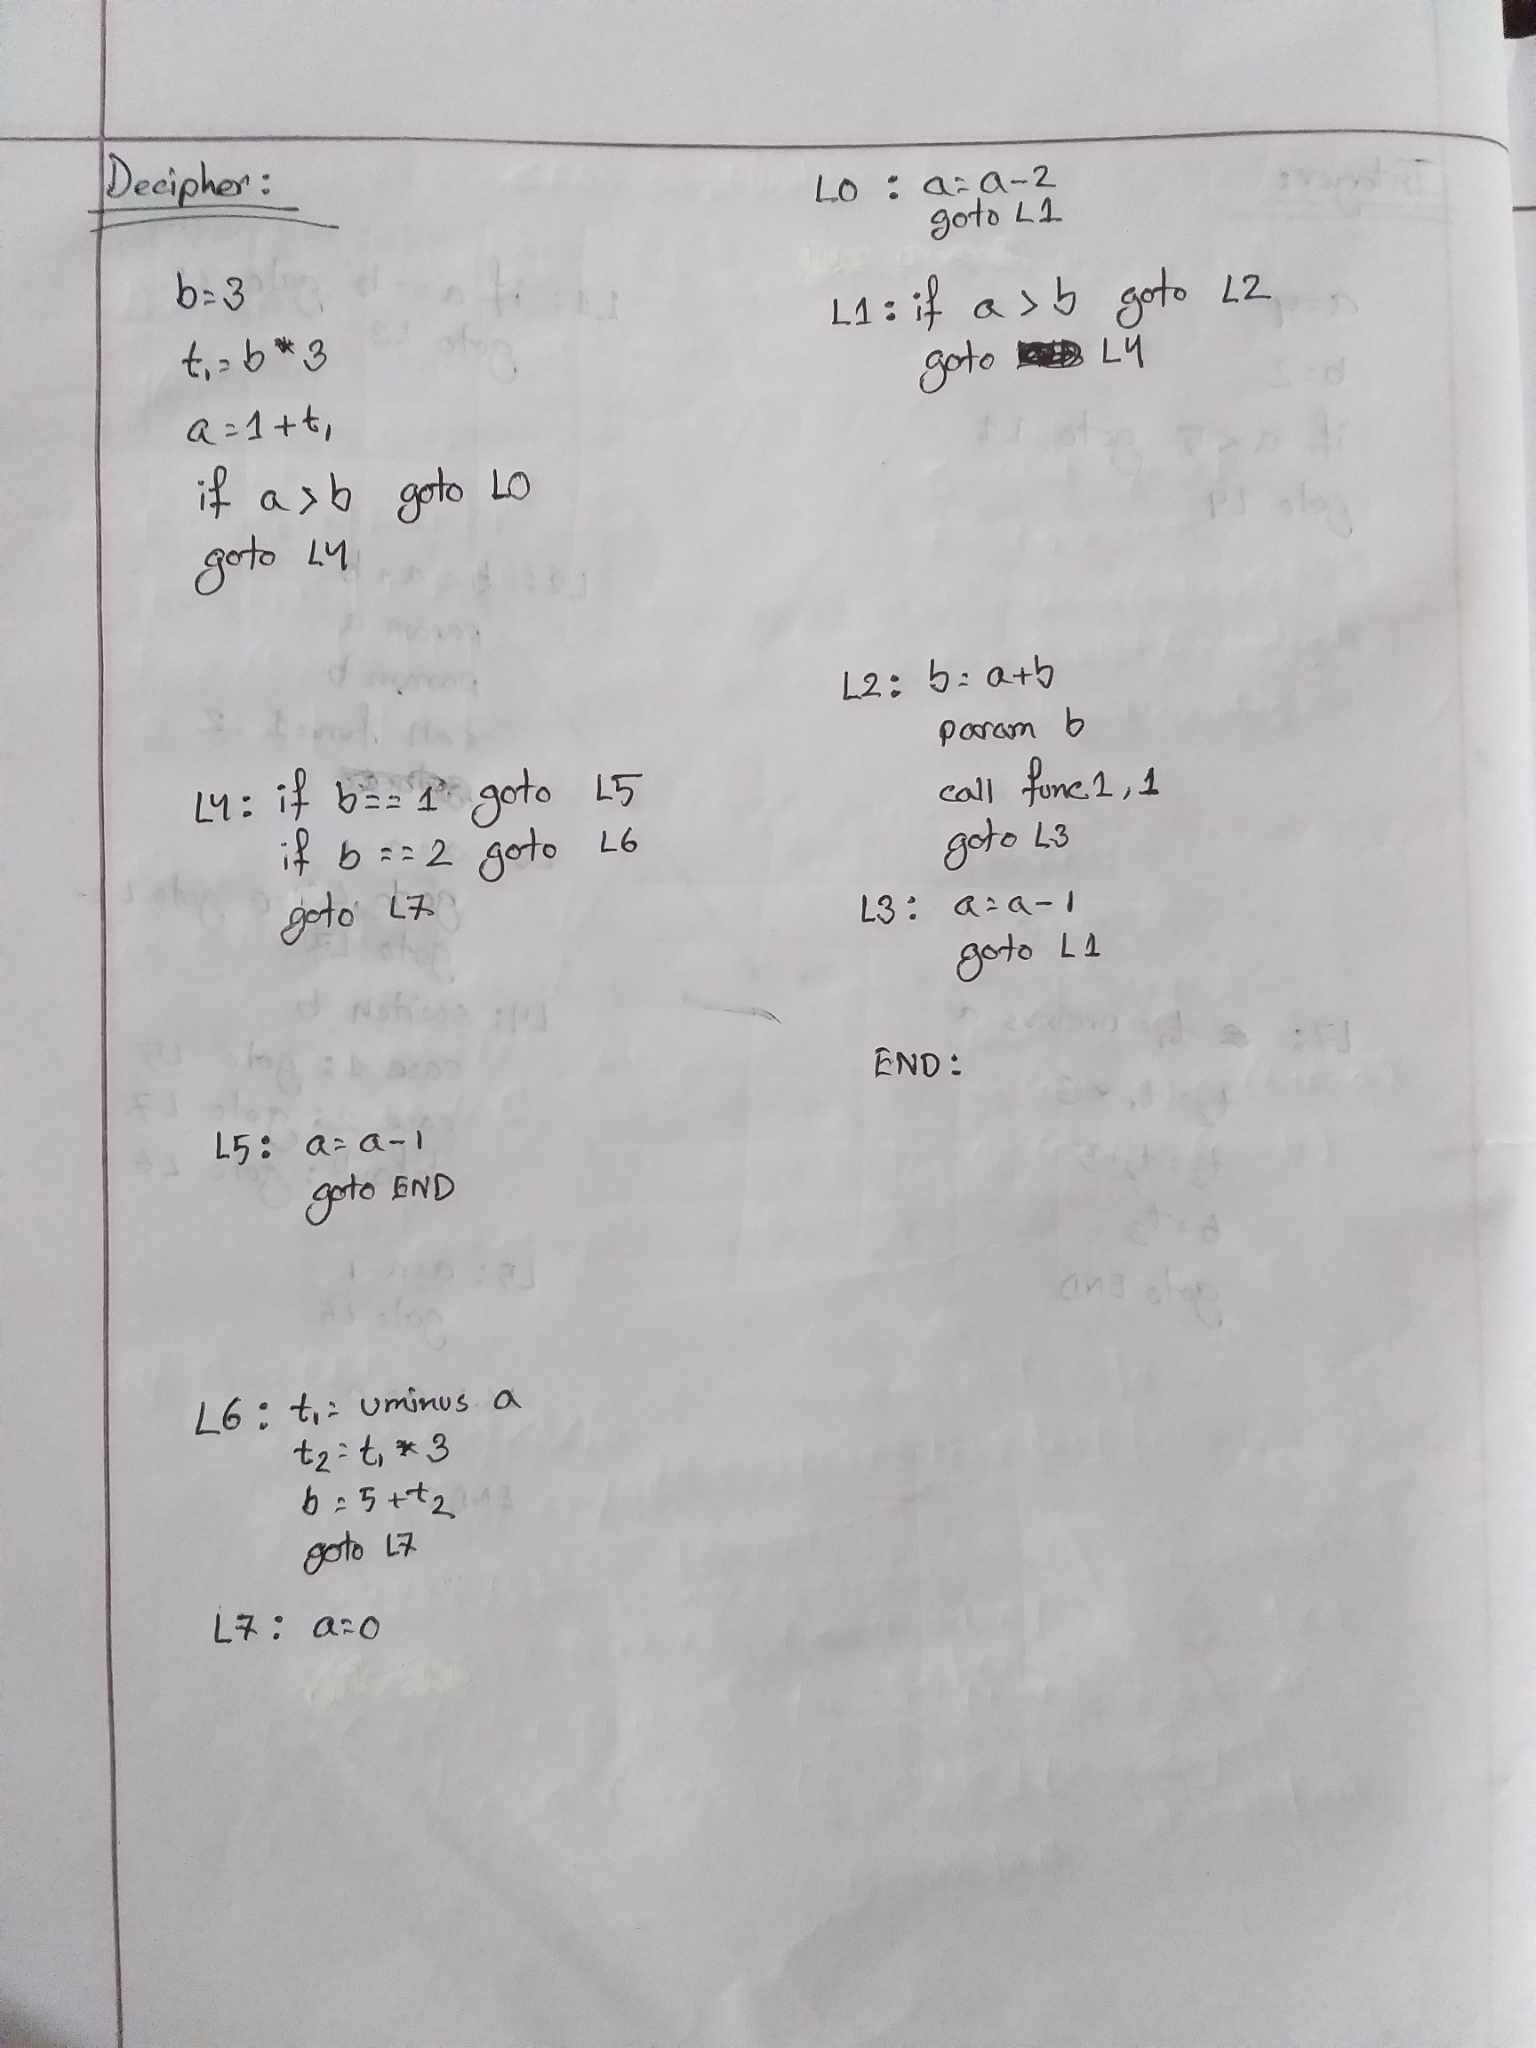 Decipher:
b=3
t₁=b*3
a=1+t₁
if a>b goto L0
goto L4
L4: if b==1 goto L5
if b==2 goto L6
goto L7
L5: a=a-1
goto END
L6: t₁= uminus a
t₂=t₁*3
b=5+t₂
goto L7
L7: a=0
L0: a=a-2
goto L1
L1: if a>b goto L2
goto L4
L2: b=a+b
param b
call func1,1
goto L3
L3: a=a-1
goto L1
END: